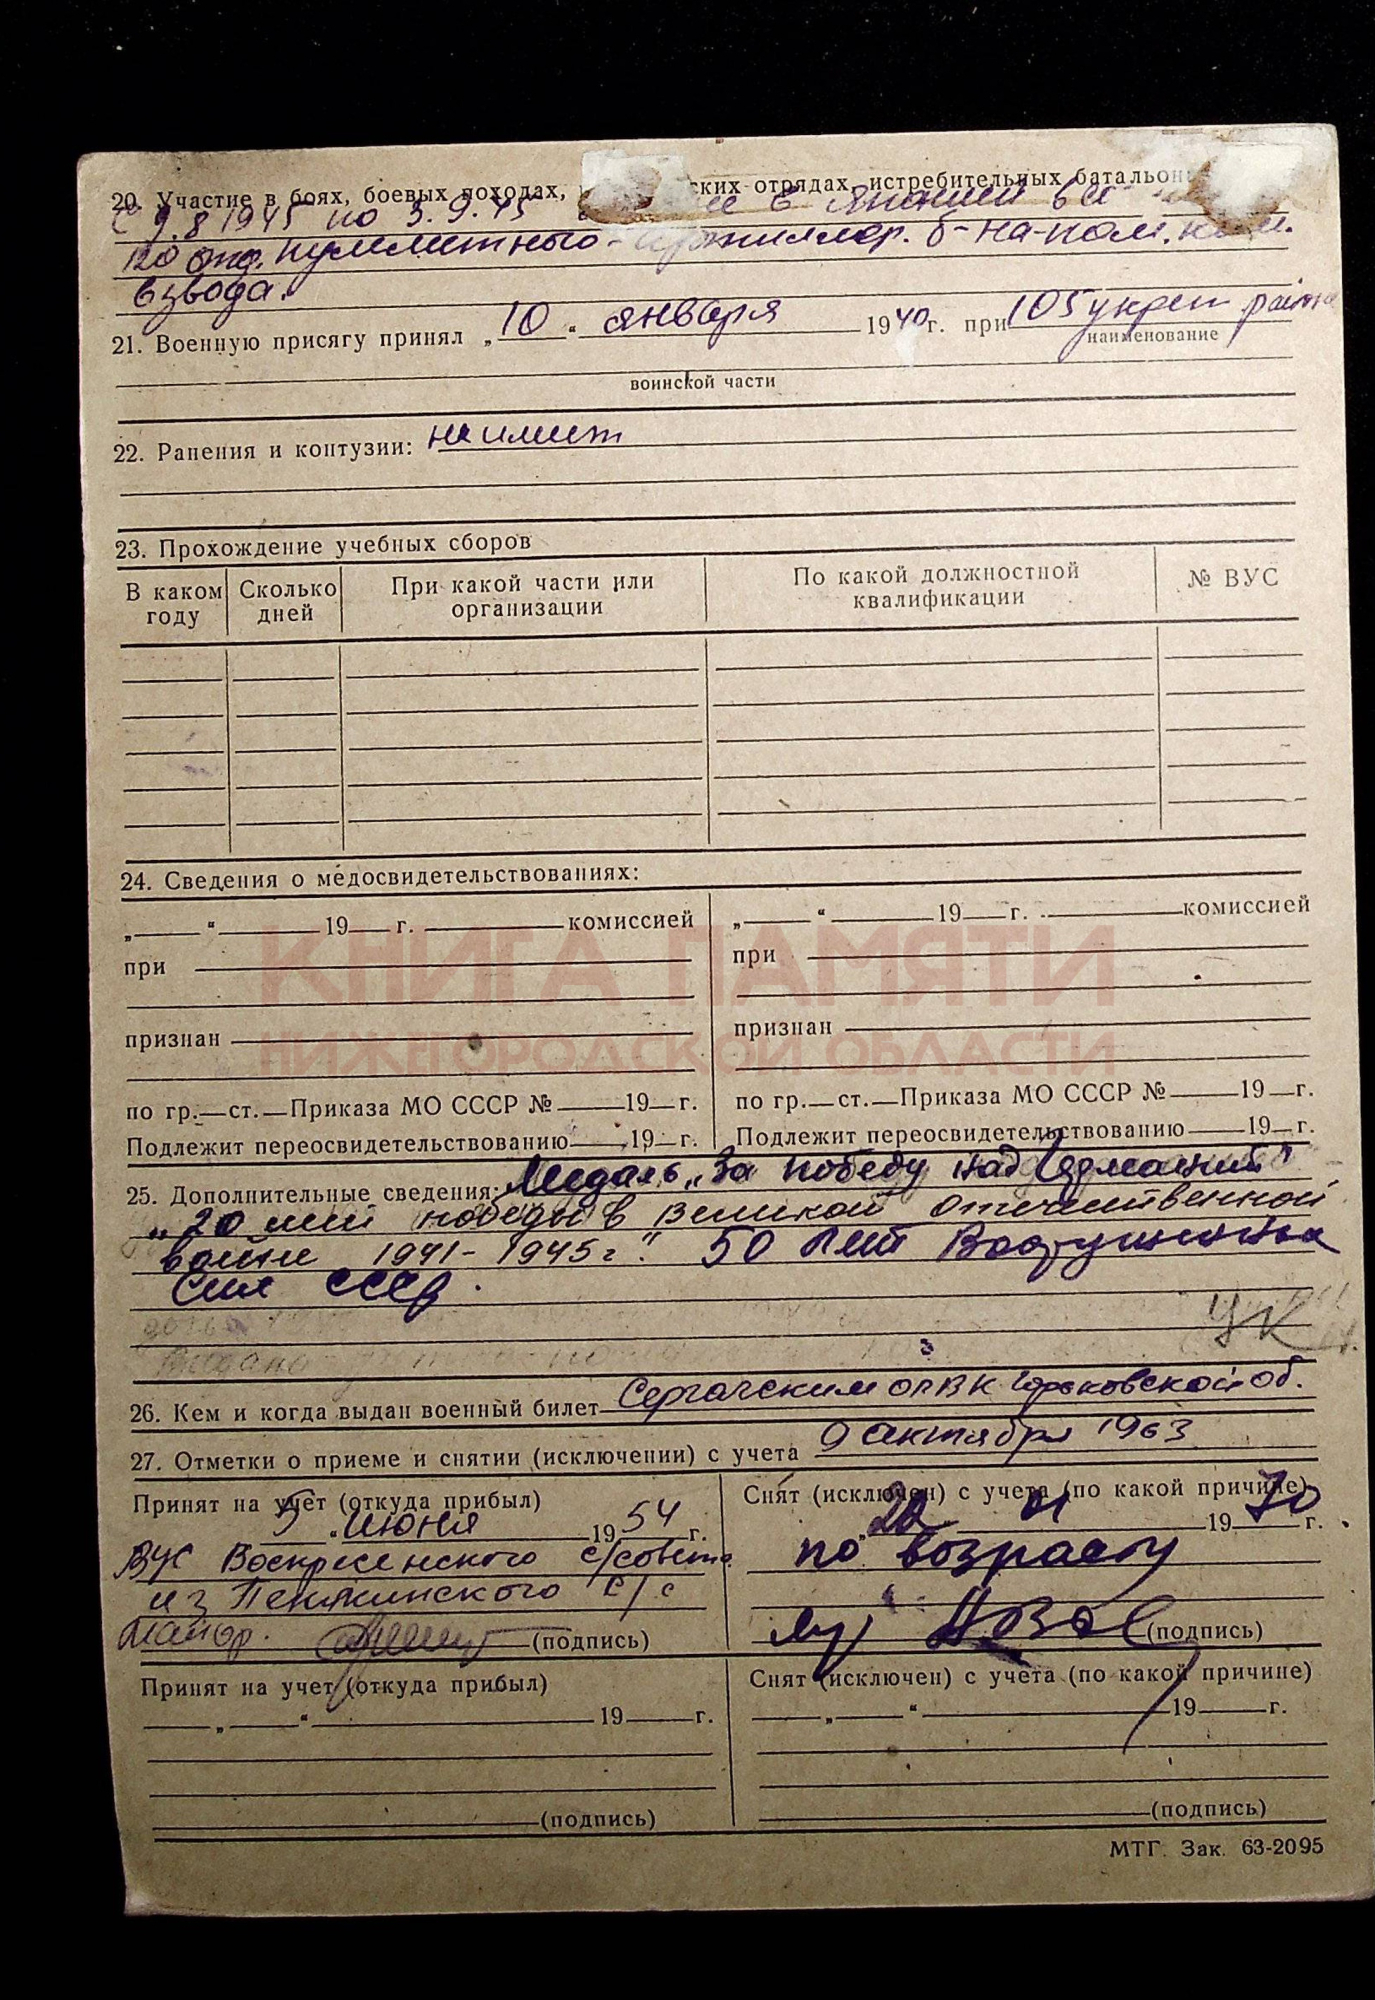 20. Участие в боях, боевых походах, ских отрядах, истребительных батальон
С 9.8 1945 по 3.9.45 с Японией в
120 отд. пулеметного-артиллер. б-на-пом. ком.
взвода.
21. Военную присягу принял „ 10 “ января 1940 г. при 105 укреп района
наименование
воинской части
22. Ранения и контузии: не имеет
23. Прохождение учебных сборов
В каком году Сколько дней При какой части или организации По какой должностной квалификации № ВУС
24. Сведения о медосвидетельствованиях:
„ “ 19 г. комиссией „ “ 19 г. комиссией
КНИГА ПАМЯТИ
при при
признан признан
НИЖЕГОРОДСКОЙ ОБЛАСТИ
по гр. ст. Приказа МО СССР № 19 г. по гр. ст. Приказа МО СССР № 19 г.
Подлежит переосвидетельствованию 19 г. Подлежит переосвидетельствованию 19 г.
25. Дополнительные сведения: Медаль „За победу над Германией“
„20 лет победы в Великой Отечественной
войне 1941-1945 г“. 50 лет Вооруженных
Сил СССР.
УК
26. Кем и когда выдан военный билет Сергачским ОРВК Горьковской об.
9 октября 1963
27. Отметки о приеме и снятии (исключении) с учета
Принят на учет (откуда прибыл) Снят (исключен) с учета (по какой причине)
5 „ июня 1954 г. „20 19 70 г.
ВУС Воскресенского с/совета по возрасту
из с/с
Майор. (подпись) (подпись)
Принят на учет (откуда прибыл) Снят (исключен) с учета (по какой причине)
„ “ 19 г. „ “ 19 г.
(подпись) (подпись)
МТГ. Зак. 63-2095